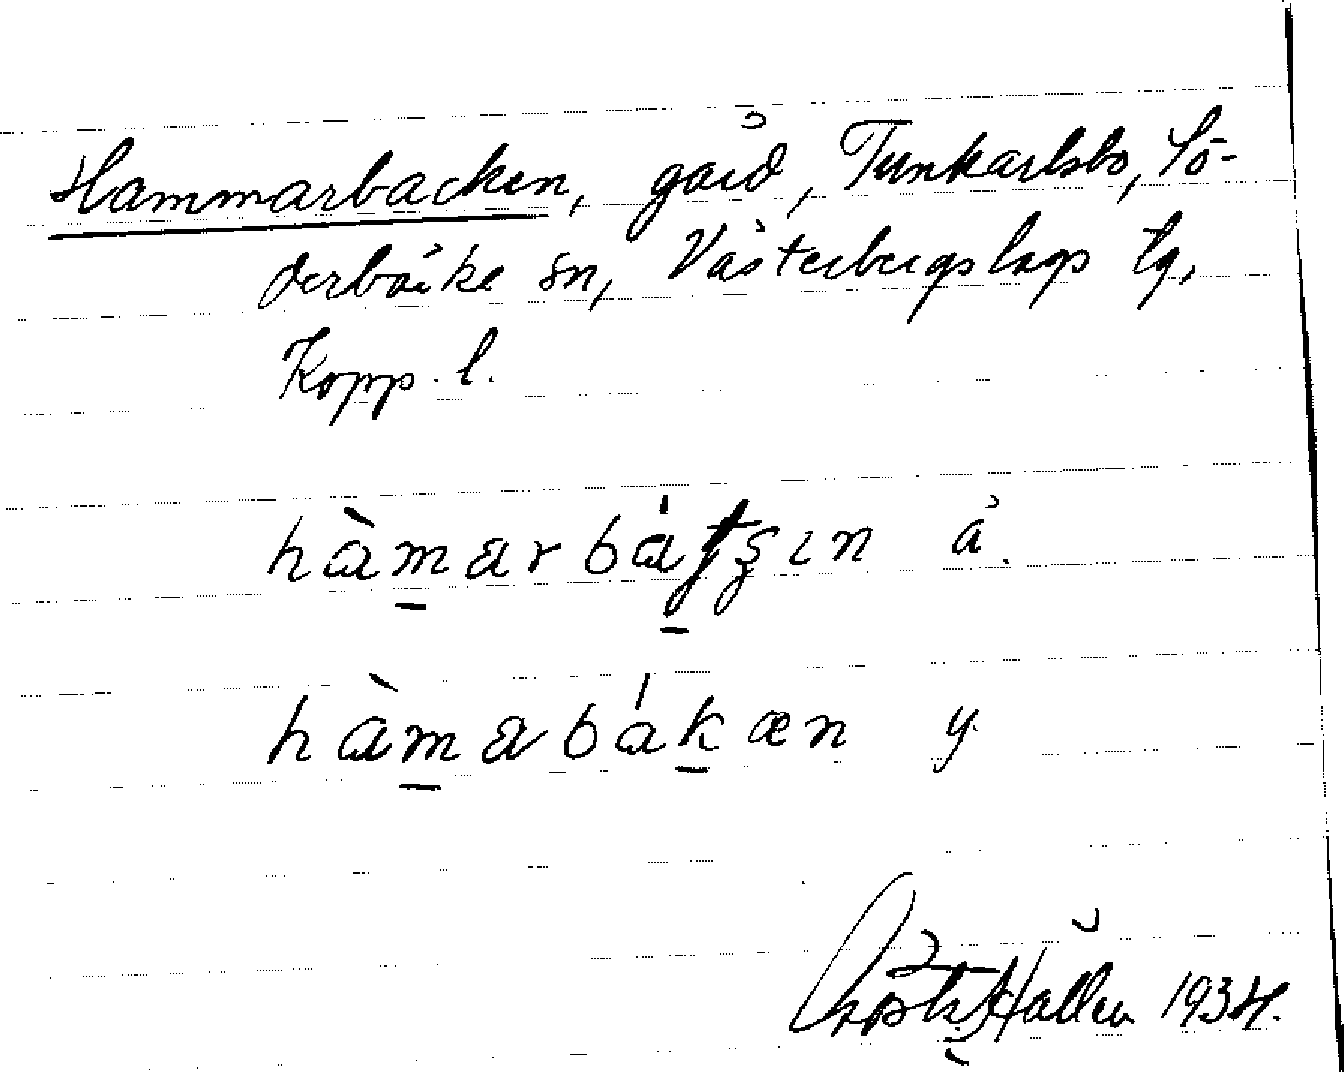 Hammarbacken, gård, Tunkarlsbo, Sö-
derbärke sn, Västerbergslags tg,
Kopp. l.
hàmarbátʂın å.
hàmabákæn y.
Hallén 1934.